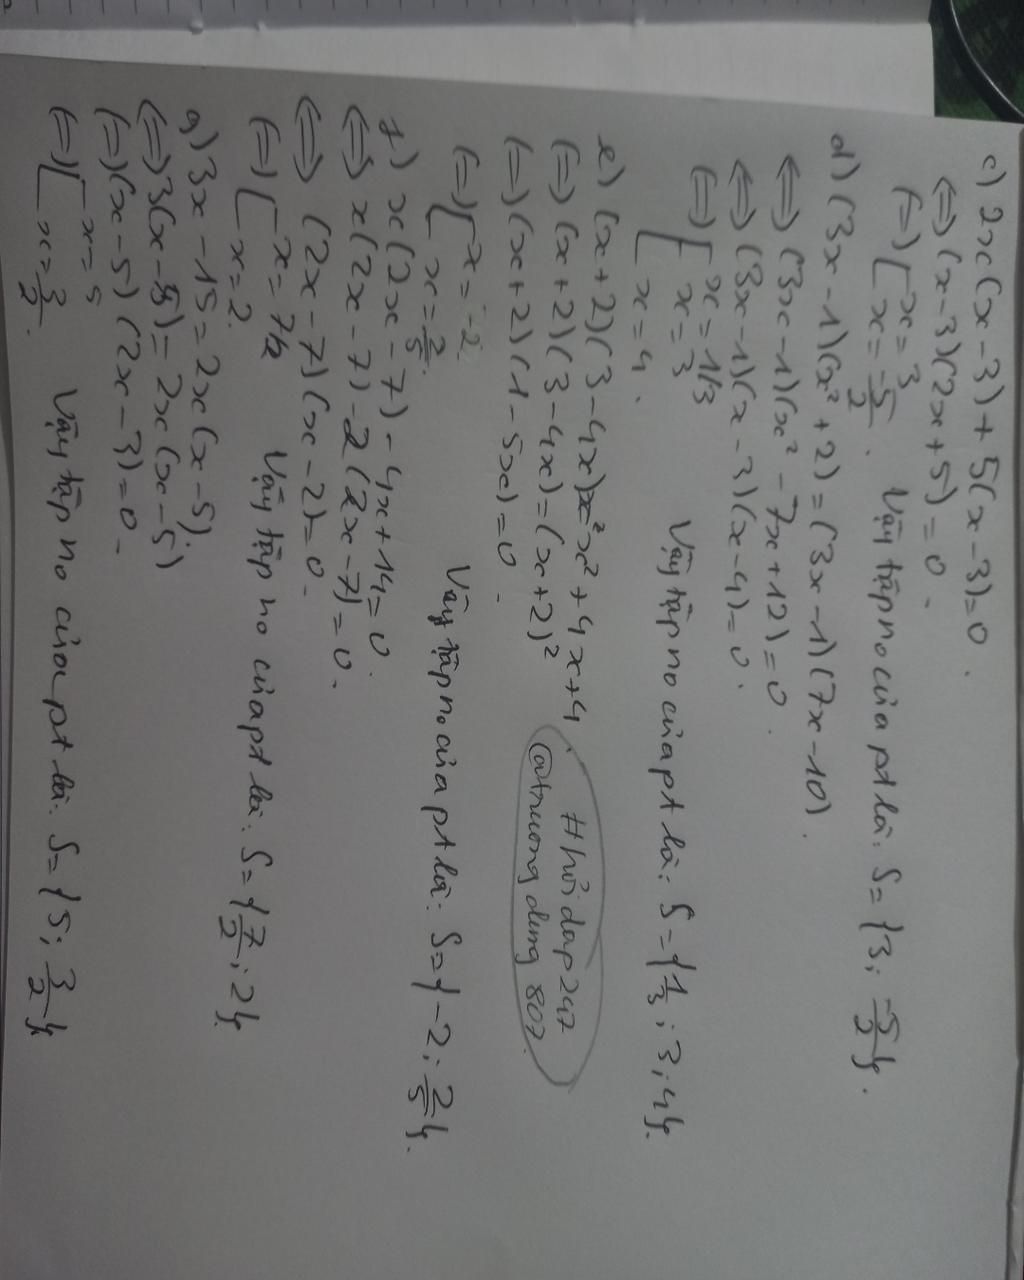 c) 2x(x-3)+5(x-3)=0.
<=> (x-3)(2x+5)=0.
<=> [ x=3
x=-5/2. Vậy tập no của pt là: S={3; -5/2}.
d) (3x-1)(x²+2)=(3x-1)(7x-10).
<=> (3x-1)(x²-7x+12)=0.
<=> (3x-1)(x-3)(x-4)=0.
<=> [ x=1/3
x=3
x=4. Vậy tập no của pt là: S={1/3; 3; 4}.
e) (x+2)(3-4x)=x²+4x+4.
<=> (x+2)(3-4x)=(x+2)²
<=> (x+2)(1-5x)=0.
#hỏi dap247
@truong dung 807.
<=> [ x=-2
x=2/5. Vậy tập no của pt là: S={-2; 2/5}.
f) x(2x-7)-4x+14=0.
<=> x(2x-7)-2(2x-7)=0.
<=> (2x-7)(x-2)=0.
<=> [ x=7/2
x=2. Vậy tập no của pt là: S={7/2; 2}.
g) 3x-15=2x(x-5).
<=> 3(x-5)=2x(x-5)
<=> (x-5)(2x-3)=0.
<=> [ x=5
x=3/2. Vậy tập no của pt là: S={5; 3/2}.